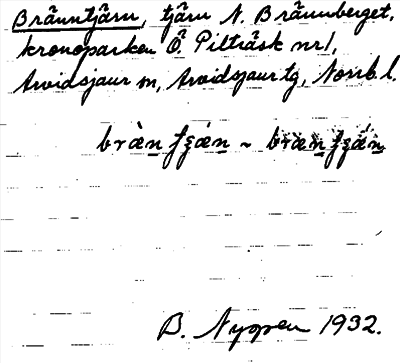 Bränntjärn, tjärn N. Brännberget,
kronoparken Ö. Pilträsk nr 1,
Arvidsjaur sn, Arvidsjaur tg, Norrb. l.
B. Nygren 1932.